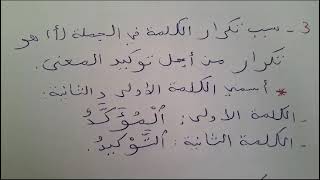 3- سبب تكرار الكلمة في الجملة (أ) هو
تكرار من أجل توكيد المعنى.
* أسمي الكلمة الأولى والثانية.
- الكلمة الأولى: ٱلْمُؤَكَّدُ
- الكلمة الثانية: ٱلتَّوْكِيدُ.